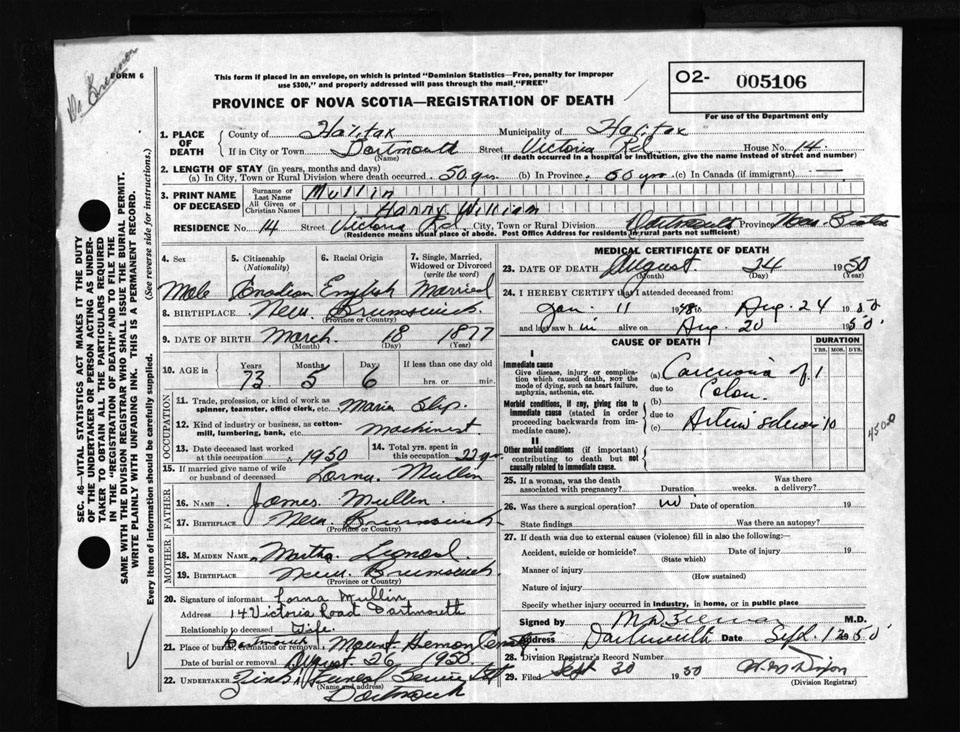 Dr Brenner
FORM 6
This form if placed in an envelope, on which is printed "Dominion Statistics—Free, penalty for improper
use $300," and properly addressed will pass through the mail "FREE"
PROVINCE OF NOVA SCOTIA—REGISTRATION OF DEATH
O2- 005106
For use of the Department only
SEC. 46—VITAL STATISTICS ACT MAKES IT THE DUTY
OF THE UNDERTAKER OR PERSON ACTING AS UNDER-
TAKER TO OBTAIN ALL THE PARTICULARS REQUIRED
IN THE "REGISTRATION OF DEATH" AND TO FILE THE
SAME WITH THE DIVISION REGISTRAR WHO SHALL ISSUE THE BURIAL PERMIT.
WRITE PLAINLY WITH UNFADING INK. THIS IS A PERMANENT RECORD.
Every item of information should be carefully supplied. (See reverse side for instructions.)
1. PLACE OF DEATH
County of Halifax Municipality of Halifax
If in City or Town Dartmouth Street Victoria Rd. House No. 14
(Name) (If death occurred in a hospital or institution, give the name instead of street and number)
2. LENGTH OF STAY (in years, months and days)
(a) In City, Town or Rural Division where death occurred 50 yrs. (b) In Province 50 yrs. (c) In Canada (if immigrant)
3. PRINT NAME OF DECEASED
Surname or Last Name Mullin
All Given or Christian Names Harry William
RESIDENCE No. 14 Street Victoria Rd. City, Town or Rural Division Dartmouth Province Nova Scotia
(Residence means usual place of abode. Post Office Address for residents in rural parts not sufficient)
4. Sex
5. Citizenship (Nationality)
6. Racial Origin
7. Single, Married, Widowed or Divorced (write the word)
Male Canadian English Married
8. BIRTHPLACE New Brunswick
(Province or Country)
9. DATE OF BIRTH March 18 1877
(Month) (Day) (Year)
10. AGE in Years Months Days If less than one day old
73 5 6 hrs. or min.
OCCUPATION
11. Trade, profession, or kind of work as
spinner, teamster, office clerk, etc. Marine Slip.
12. Kind of industry or business, as cotton-
mill, lumbering, bank, etc. Machinist
13. Date deceased last worked at this occupation 1950
14. Total yrs. spent in this occupation 22 yrs.
15. If married give name of wife
or husband of deceased Lorna Mullin
FATHER
16. NAME James Mullin
17. BIRTHPLACE New Brunswick
(Province or Country)
MOTHER
18. MAIDEN NAME Martha Legnard
19. BIRTHPLACE New Brunswick
(Province or Country)
20. Signature of informant Lorna Mullin
Address 14 Victoria Road Dartmouth
Relationship to deceased Wife.
21. Place of burial, cremation or removal Dartmouth Mount Hermon Cemetery
Date of burial or removal August 26 1950
22. UNDERTAKER Zinks Funeral Service Ltd
(Name and address)
Dartmouth
MEDICAL CERTIFICATE OF DEATH
23. DATE OF DEATH August 24 1950
(Month) (Day) (Year)
24. I HEREBY CERTIFY that I attended deceased from:
Jan 11 1948 to Aug. 24 1950
and last saw him alive on Aug. 20 1950
CAUSE OF DEATH
DURATION
YRS. MOS. DYS.
I
Immediate cause
Give disease, injury or complica-
tion which caused death, NOT the
mode of dying, such as heart failure,
asphyxia, asthenia, etc.
(a) Carcinoma of 1
due to
Morbid conditions, if any, giving rise to
immediate cause (stated in order
proceeding backwards from im-
mediate cause).
(b) Colon.
due to
(c) Arterio sclerosis 10
II
Other morbid conditions (if important)
contributing to death but not
causally related to immediate cause.
25. If a woman, was the death
associated with pregnancy? Duration weeks. Was there a delivery?
26. Was there a surgical operation? no Date of operation 19
State findings Was there an autopsy?
27. If death was due to external causes (violence) fill in also the following:—
Accident, suicide or homicide? Date of injury 19
(State which)
Manner of injury
(How sustained)
Nature of injury
Specify whether injury occurred in industry, in home, or in public place
Signed by M.D.
Address Dartmouth Date Sept. 1 1950
28. Division Registrar's Record Number
29. Filed Sept 30 1950 W. M. Dixon
(Division Registrar)